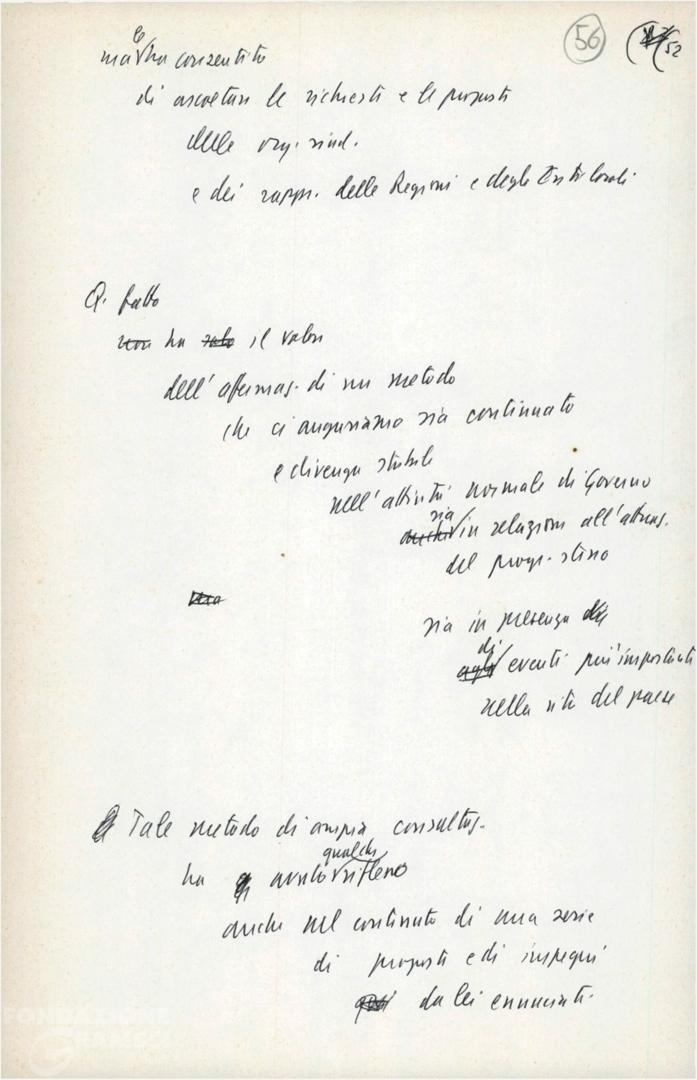 56
52
ma le ha consentito
di ascoltare le richieste e le proposte
delle org. sind.
e dei rappr. delle Regioni e degli Enti locali
Q. fatto
non ha solo il valore
dell'affermaz. di un metodo
che ci auguriamo sia continuato
e divenga stabile
nell'attività normale di Governo
sia in relazione all'attuaz.
del progr. stesso
sia in presenza
di eventi più importanti
nella vita del paese
Tale metodo di ampia consultaz.
ha avuto qualche riflesso
anche nel contenuto di una serie
di proposte e di impegni
da lei enunciati.
FONDAZIONE
GRAMSCI